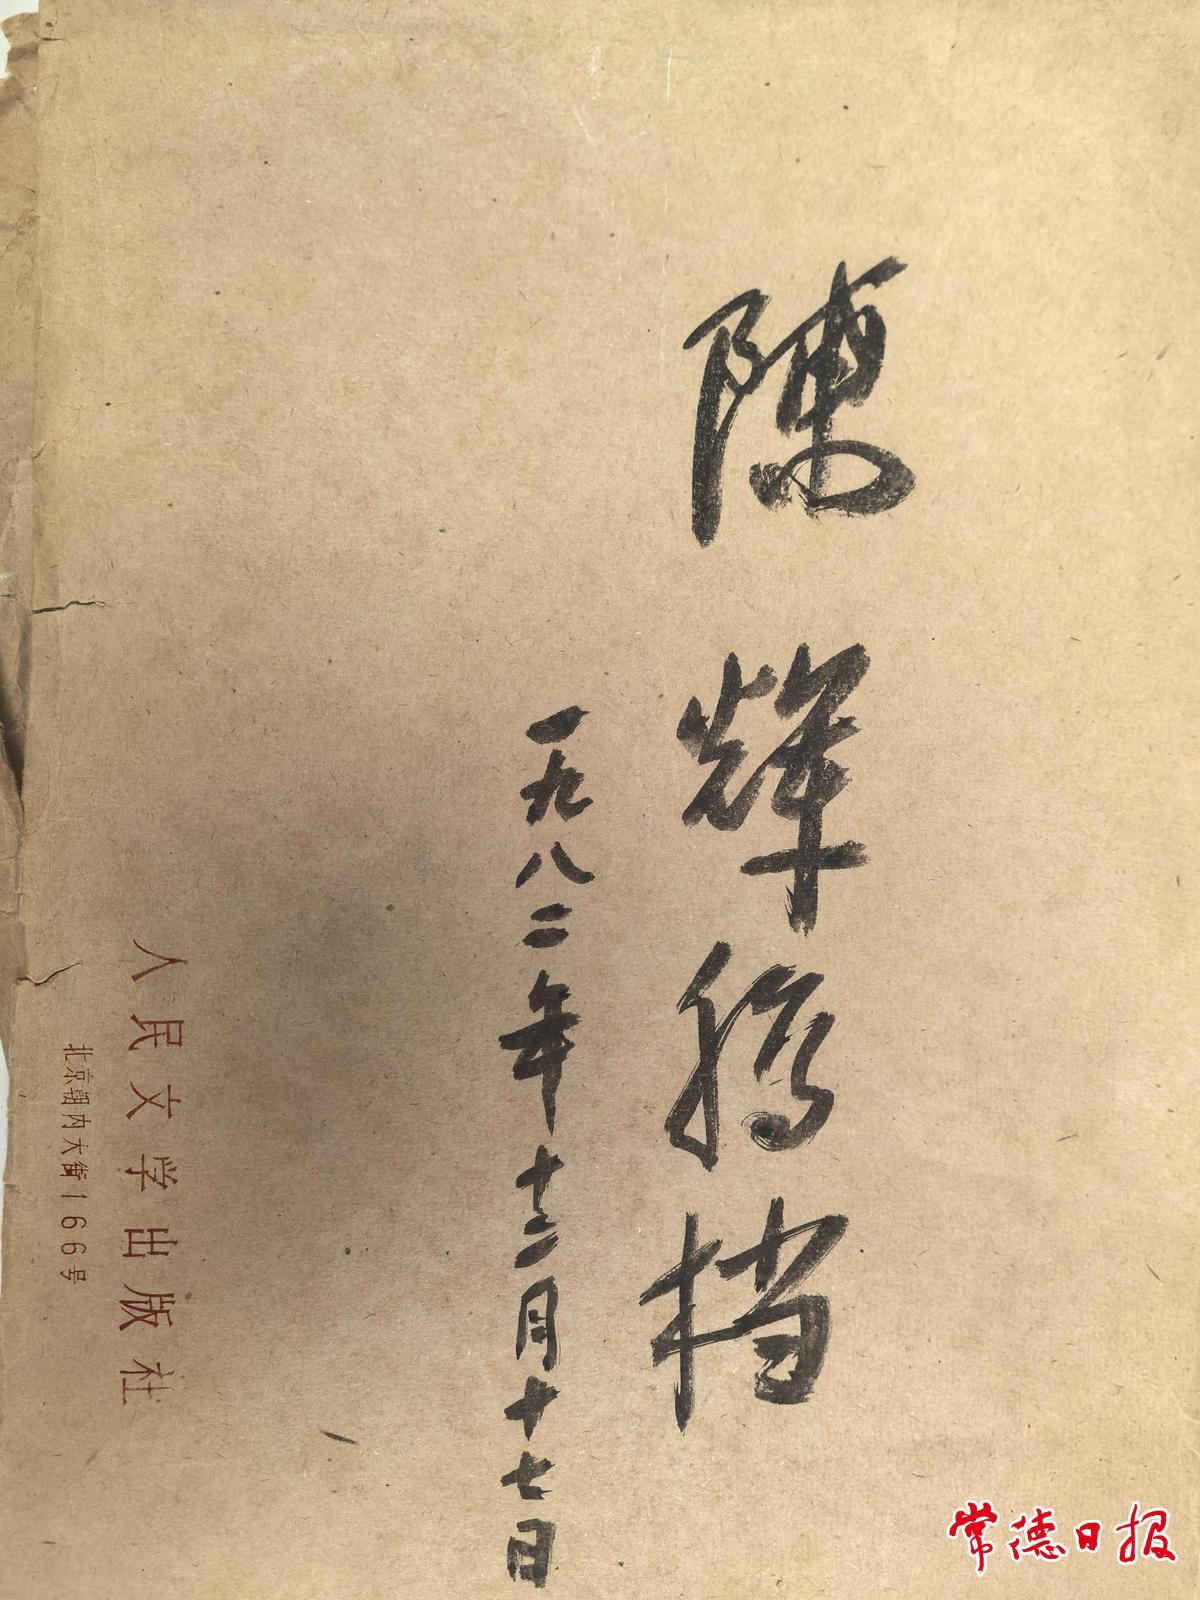 陳辉腾档
一九八二年十二月十七日
人民文学出版社
北京朝内大街166号
常德日报